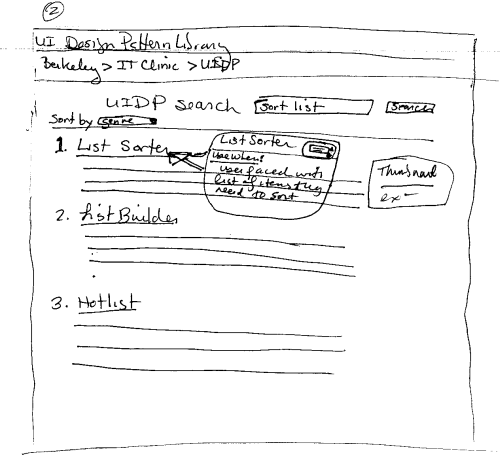 2
UI Design Pattern Library
Berkeley > IT Clinic > UIDP
UIDP search sort list search
Sort by genre
1. List Sorter
List Sorter
Use when:
user faced with
list of items they
need to sort
Thumbnail
ex
2. List Builder
3. Hotlist